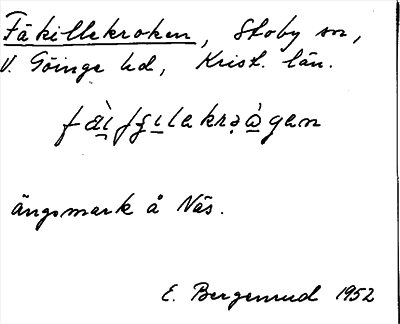 Fäkillekroken, Stoby sn,
V. Göinge hd, Krist. län.
ängsmark å Näs.
E. Bergenrud 1952